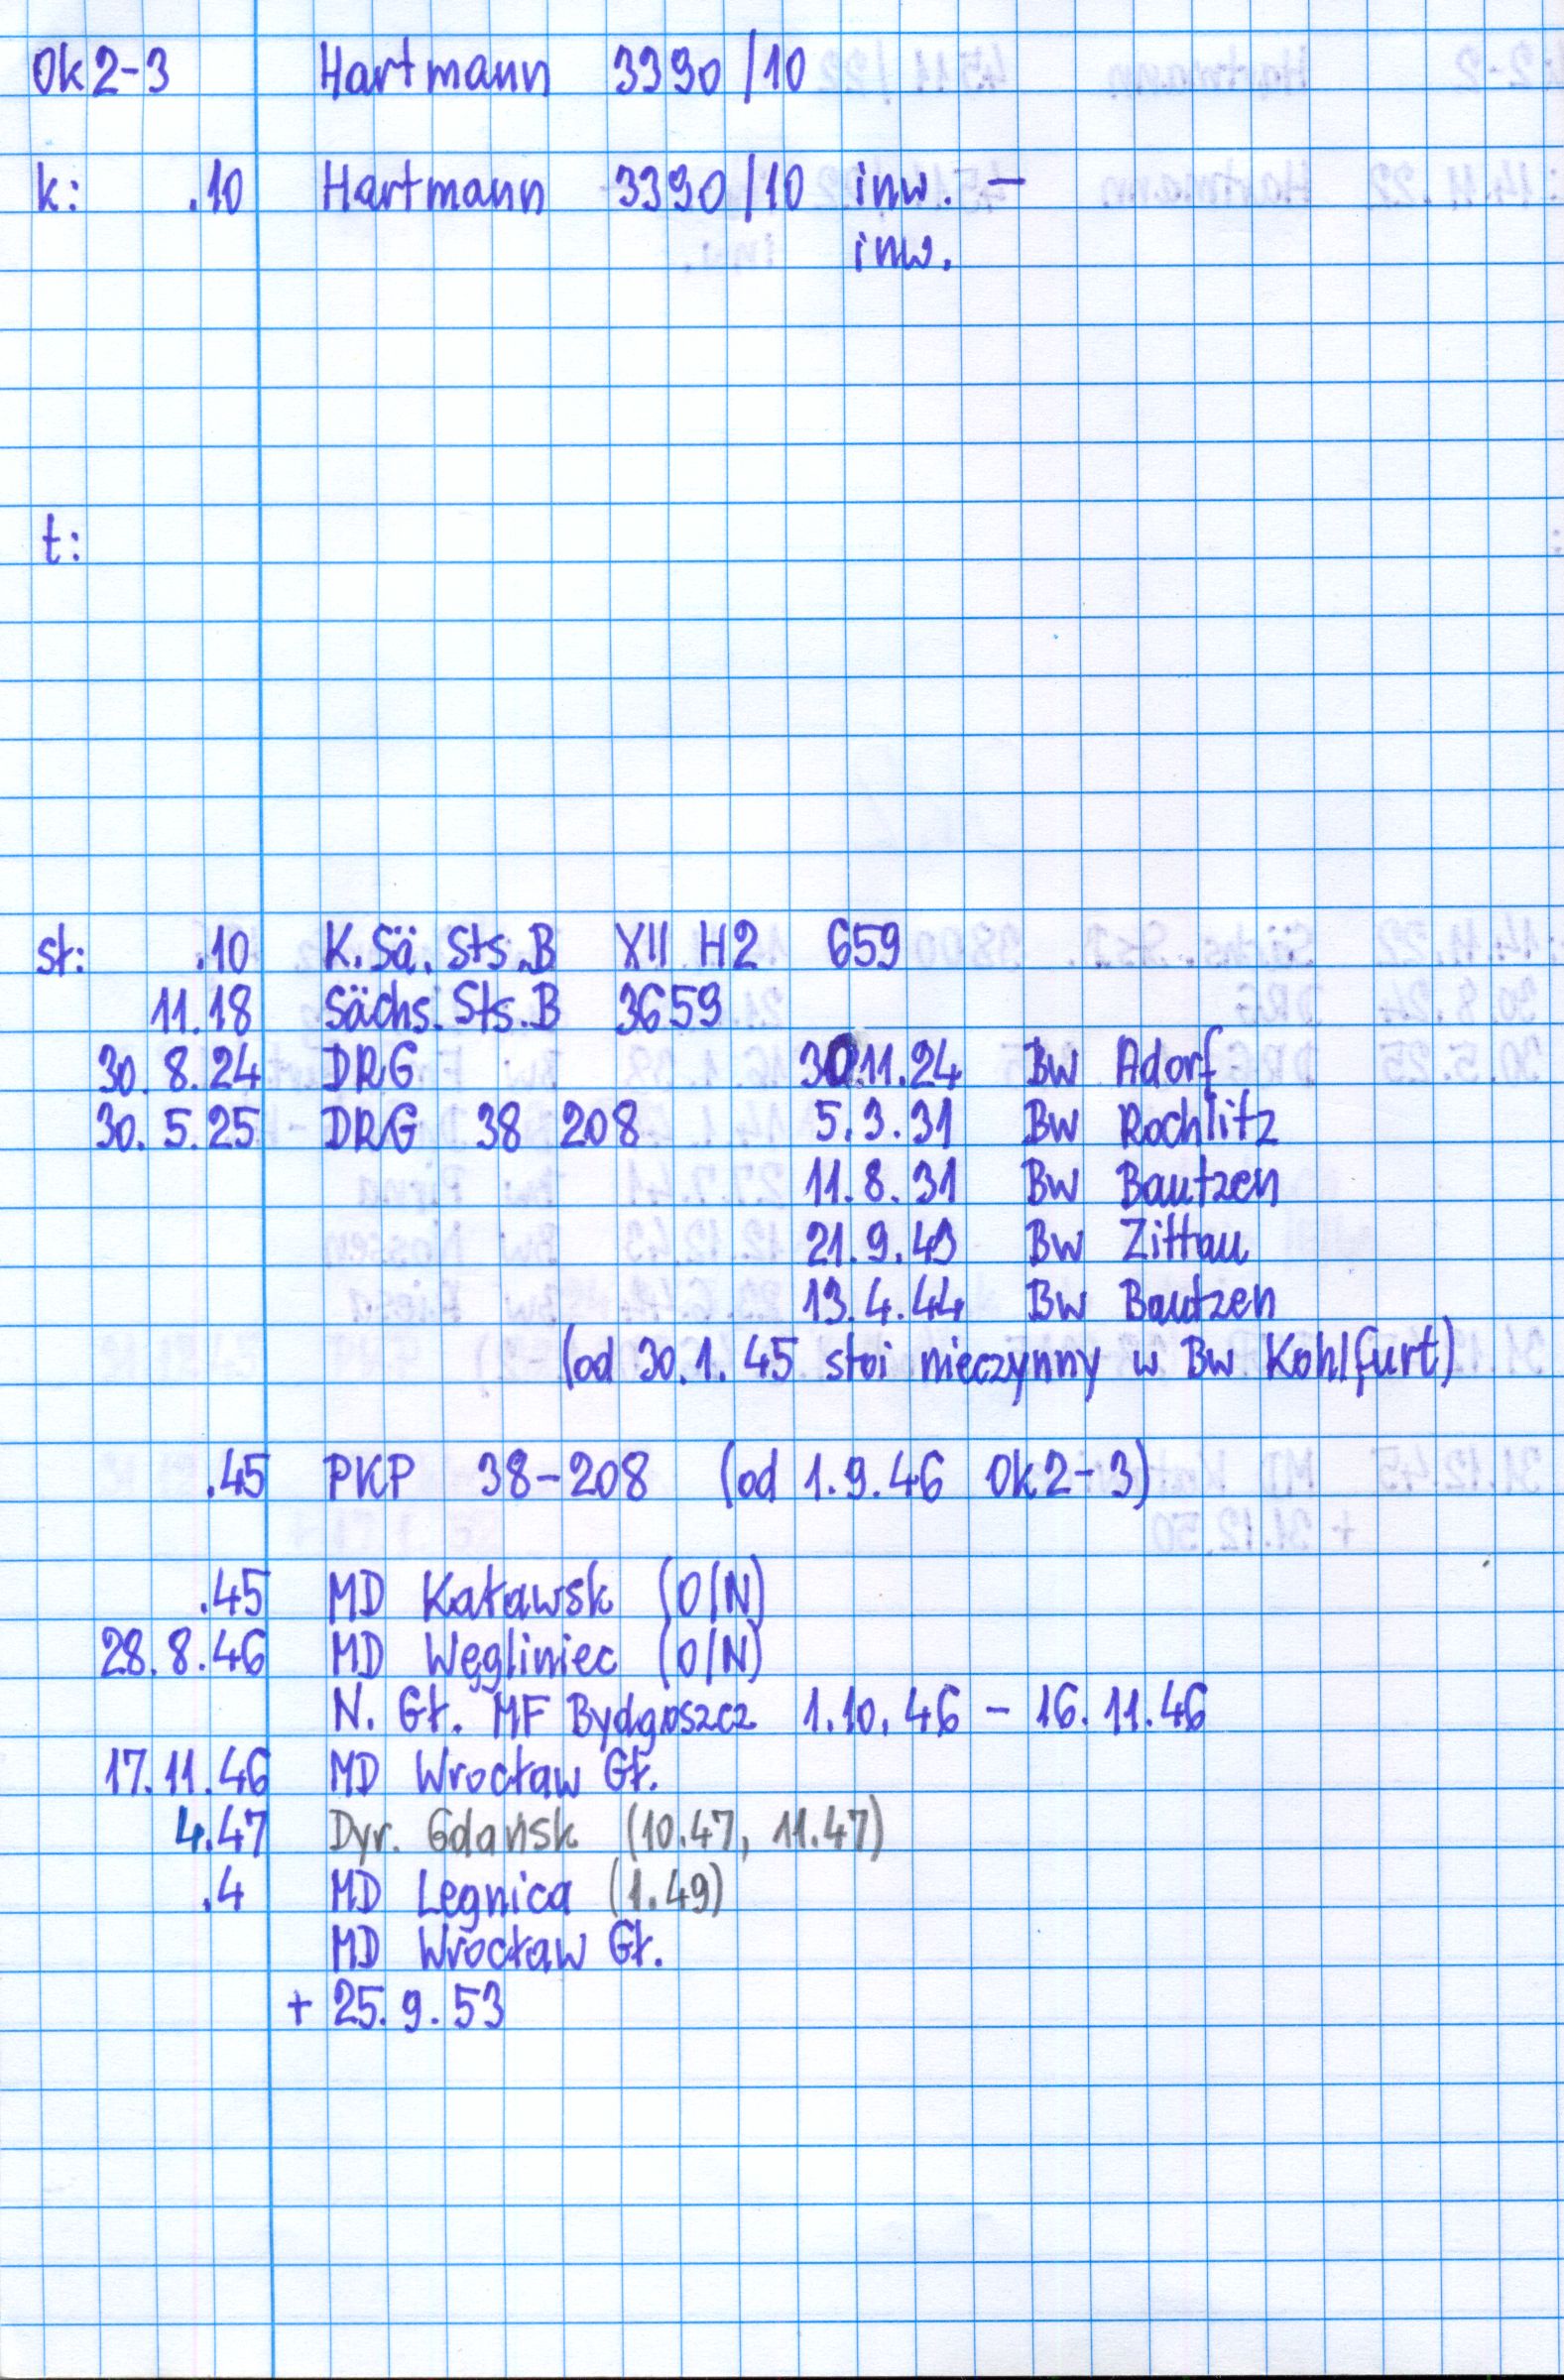 Ok2-3 Hartmann 3390/10
k: .10 Hartmann 3390/10 inw. –
inw.
t:
st: .10 K.Sä.Sts.B XII H2 659
11.18 Sächs.Sts.B 3659
30.8.24 DRG 30.11.24 Bw Adorf
30.5.25 DRG 38 208 5.3.31 Bw Rochlitz
11.8.31 Bw Bautzen
21.9.43 Bw Zittau
13.4.44 Bw Bautzen
(od 30.1.45 stoi nieczynny w Bw Kohlfurt)
.45 PKP 38-208 (od 1.9.46 Ok2-3)
.45 MD Kaławsk (O/N)
28.8.46 MD Węgliniec (O/N)
N. Gł. MF Bydgoszcz 1.10.46 – 16.11.46
17.11.46 MD Wrocław Gł.
4.47 Dyr. Gdańsk (10.47, 11.47)
.4 MD Legnica (1.49)
MD Wrocław Gł.
+ 25.9.53